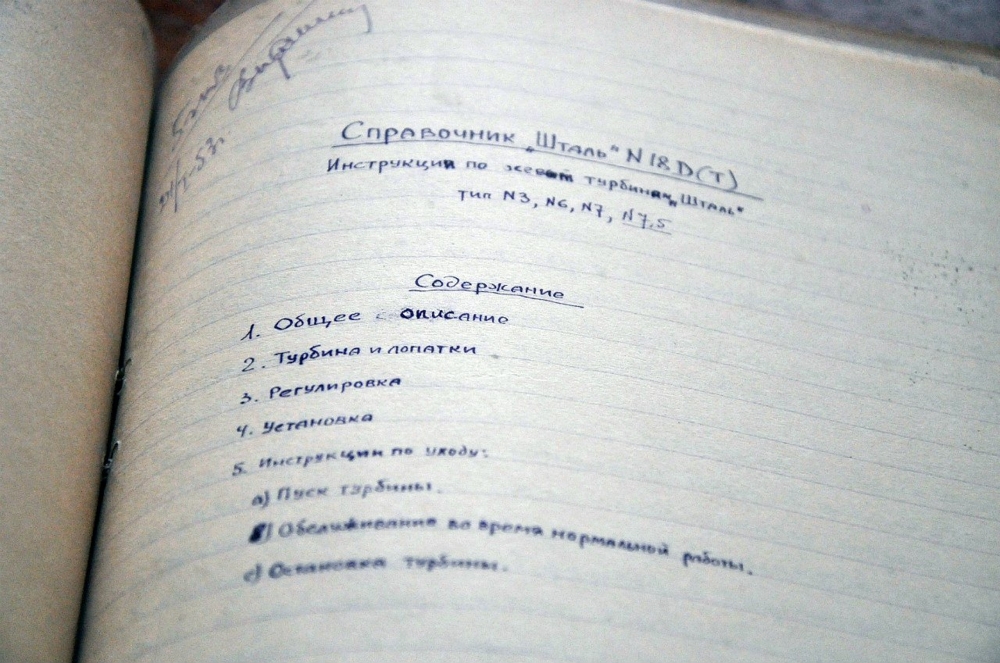 53г.
Справочник „Шталь" N18D(т)
Инструкции по турбинам „Шталь"
тип N3, N6, N7, N7,5
Содержание
1. Общее описание
2. Турбина и лопатки
3. Регулировка
4. Установка
5. Инструкции по уходу:
а) Пуск турбины.
Обслуживание во время нормальной работы.
с) Остановка турбины.